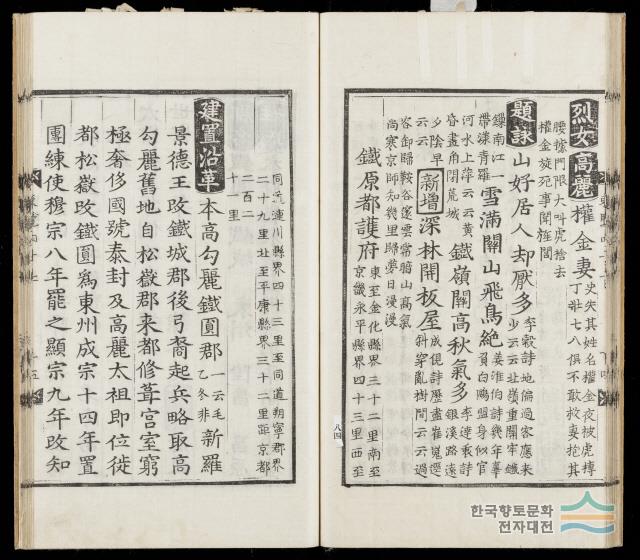 烈女高麗權金妻史失其姓名權金夜被虎搏
丁壯七八俱不敢救妻抱其
腰據門限大叫虎捨去
權金旋死事聞旌閭
題詠山好居人却厭多李穀詩地偏過客應來
少云云北嶺重關牢鐵
鏁南江一
帶漾靑羅雪滿關山飛鳥絶姜淮伯詩幾年辜
負白鷗盟身似官
河水上萍云云黃
昏畫角閑荒城鐵嶺關高秋氣多李達衷詩
銀溪路遠
夕陰早
云云新增深林開板屋成俔詩歷盡崔嵬逕
斜穿亂樹間云云過
客卸歸鞍谷邃雲常暗山高氣
尙寒京師知幾里歸夢日漫漫
鐵原都護府東至金化縣界三十二里南至
京畿永平縣界四十三里西至
同流漣川縣界四十三里至同道朔寧郡界
二十九里北至平康縣界三十二里距京都
二百二
十一里
建置沿革本高勾麗鐵圓郡一云毛
乙冬非新羅
景德王改鐵城郡後弓裔起兵略取高
勾麗舊地自松嶽郡來都修葺宮室窮
極奢侈國號泰封及高麗太祖卽位徙
都松嶽改鐵圓爲東州成宗十四年置
團練使穆宗八年罷之顯宗九年改知
八四
한국향토문화
전자대전